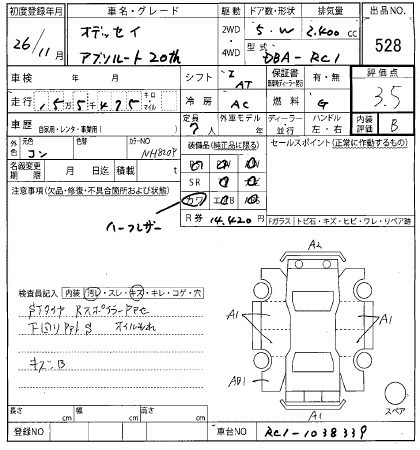 初度登録年月 車名・グレード 駆動 ドア数・形状 排気量 出品NO.
26/11月 オデッセイ アブソルート 20th 2WD・4WD 5・W 2.400cc 528
型式 DBA-RC1
車検 年 月 シフト I AT 保証書 有・無 評価点 3.5
走行 キロ マイル 冷房 AC 燃料 G
車歴 自家用・レンタ・事業用( ) 定員 7人 外車モデル 年 ディーラー・並行 ハンドル 左・右 内装評価 B
外色 元色 コン 色替 カラーNO NH820P
名義変更期限 月 日迄 積載 t
装備品(純正品に限る) セールスポイント(正常に作動するもの)
SR
カワ
R券 14.420円
注意事項(欠品・修復・不具合箇所および状態)
ハーフレザー
Fガラス トビ石・キズ・ヒビ・ワレ・リペア跡
検査員記入 内装 汚レ・スレ・キズ・キレ・コゲ・穴
オイルもれ
キズB
A2
A1
A1
AB1
A1
A1
スペア
長さ cm 幅 cm 高さ cm
登録NO 車台NO RC1-1038339